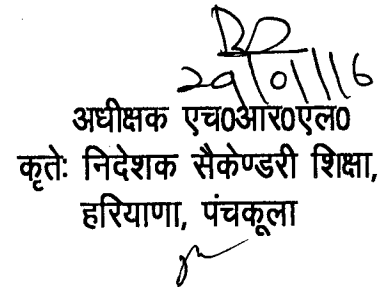 29/01/16
अधीक्षक एच0आर0एल0
कृतेः निदेशक सैकेण्डरी शिक्षा,
हरियाणा, पंचकूला